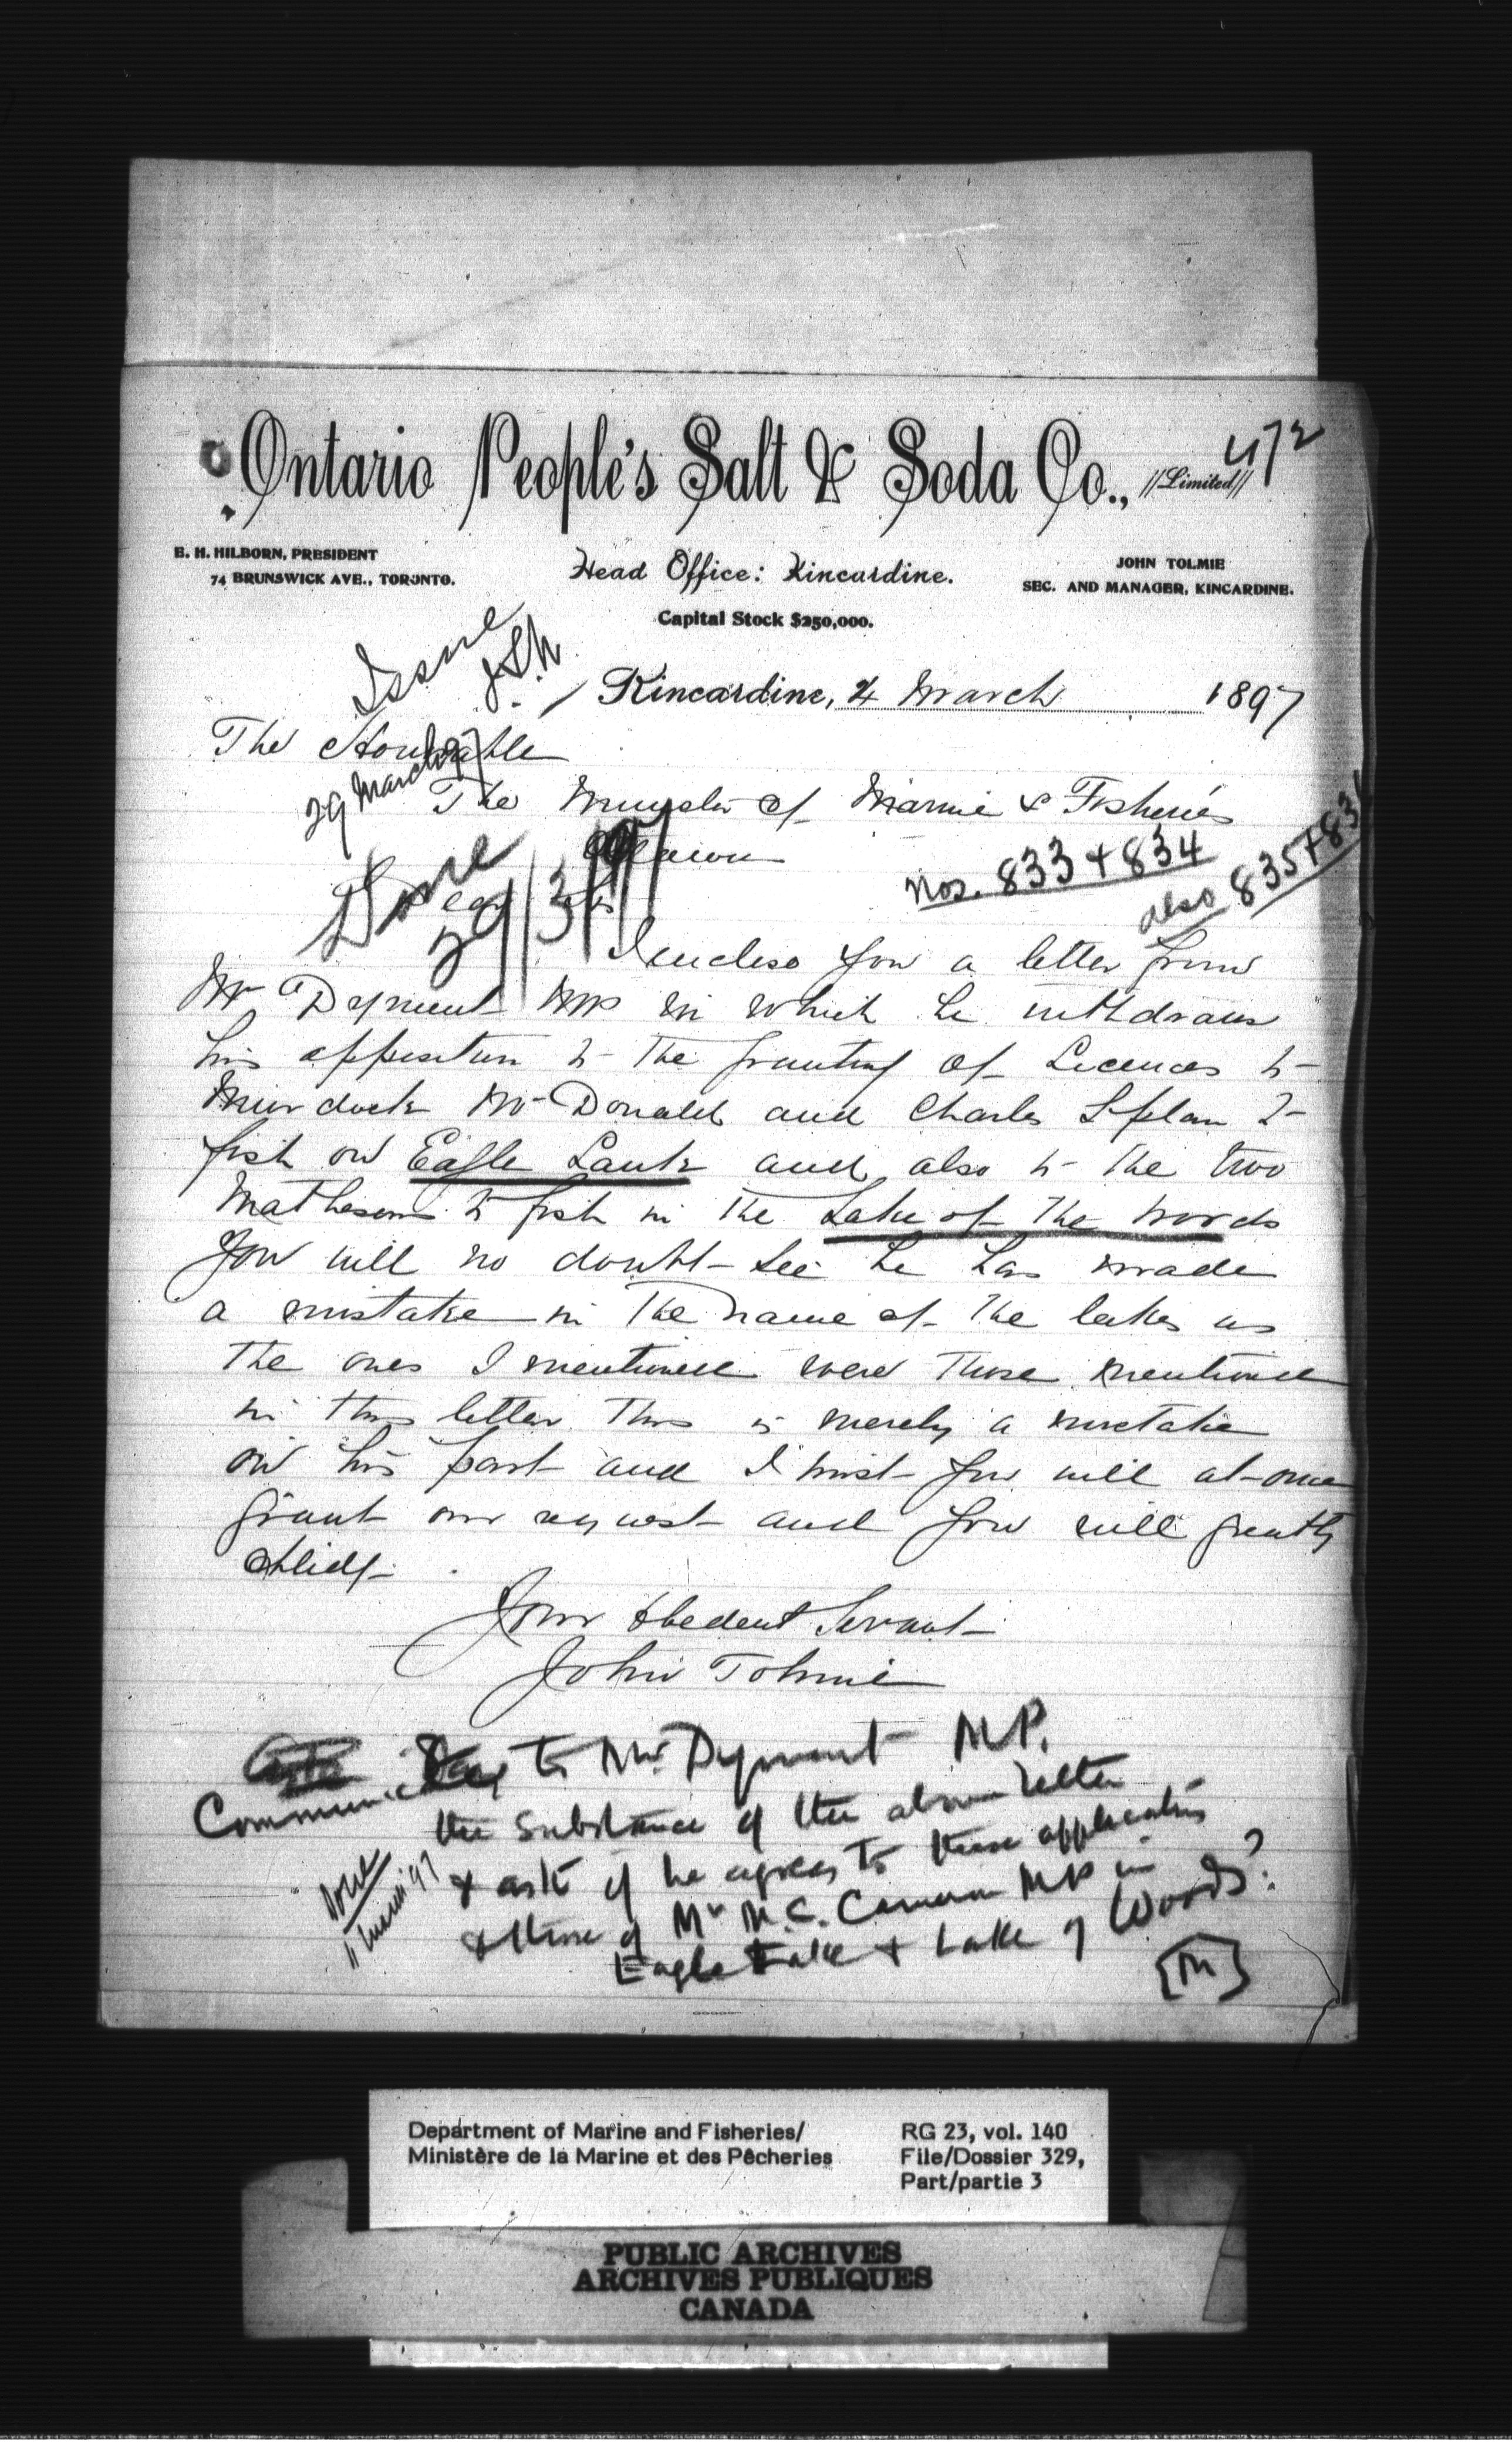 472
Ontario People's Salt & Soda Co., Limited
E. H. HILBORN, PRESIDENT
74 BRUNSWICK AVE., TORONTO.
Head Office: Kincardine.
JOHN TOLMIE
SEC. AND MANAGER, KINCARDINE.
Capital Stock $250,000.
Issue
29 March 97
Kincardine, 4 March 1897
The Honorable
The Minister of Marine & Fisheries
Ottawa
Nos. 833 & 834
also 835 &
Done
29/3/97
Dear Sir
I encloso you a letter from
Mr Dyment MP in which he withdraws
his opposition to the granting of Licences to
Murdock McDonald and Charles to
fish on Eagle Lake and also to the two
Mathesons to fish in the Lake of the Woods
You will no doubt see he has made
a mistake in the name of the lakes as
the ones I mentioned were those mentioned
in this letter. This is merely a mistake
on his part and I trust you will at once
grant our request and you will greatly
oblidge
Your obedent Servant
John Tolmie
Communicate to Mr Dyment MP.
the substance of the above letter
& ask if he agrees to these applications
& those of Mr M.C. Cameron MP in
Eagle Lake & Lake of Woods?
Done
11 March 97
Department of Marine and Fisheries/
Ministère de la Marine et des Pêcheries
RG 23, vol. 140
File/Dossier 329,
Part/partie 3
PUBLIC ARCHIVES
ARCHIVES PUBLIQUES
CANADA